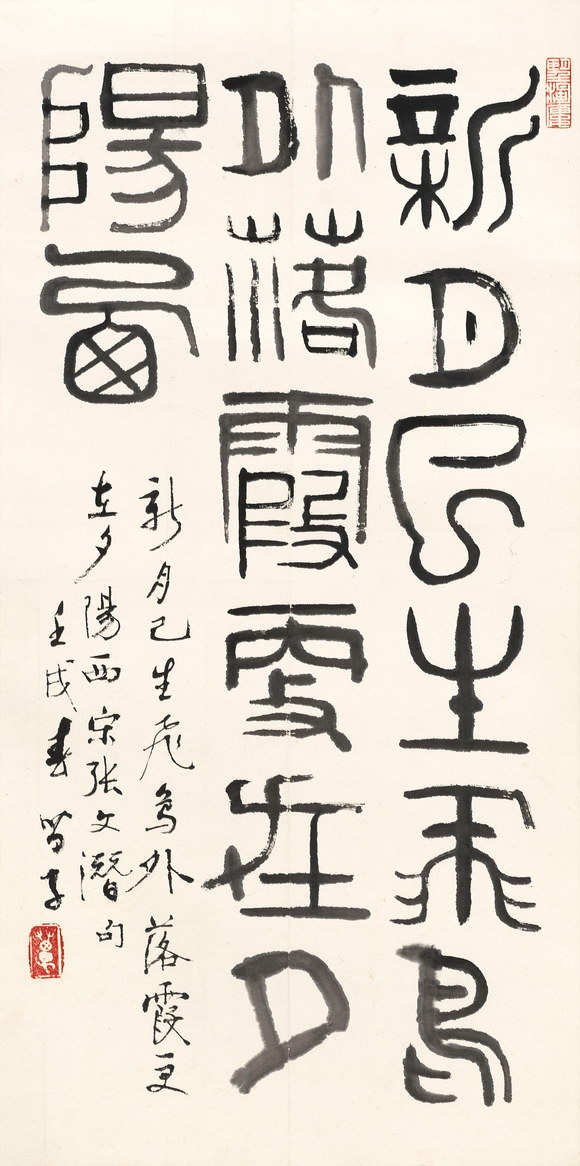 新月已生飛鳥
外落霞更在夕
陽西
新月已生飛鳥外落霞更
在夕陽西宋張文潛句
壬戌春苗子